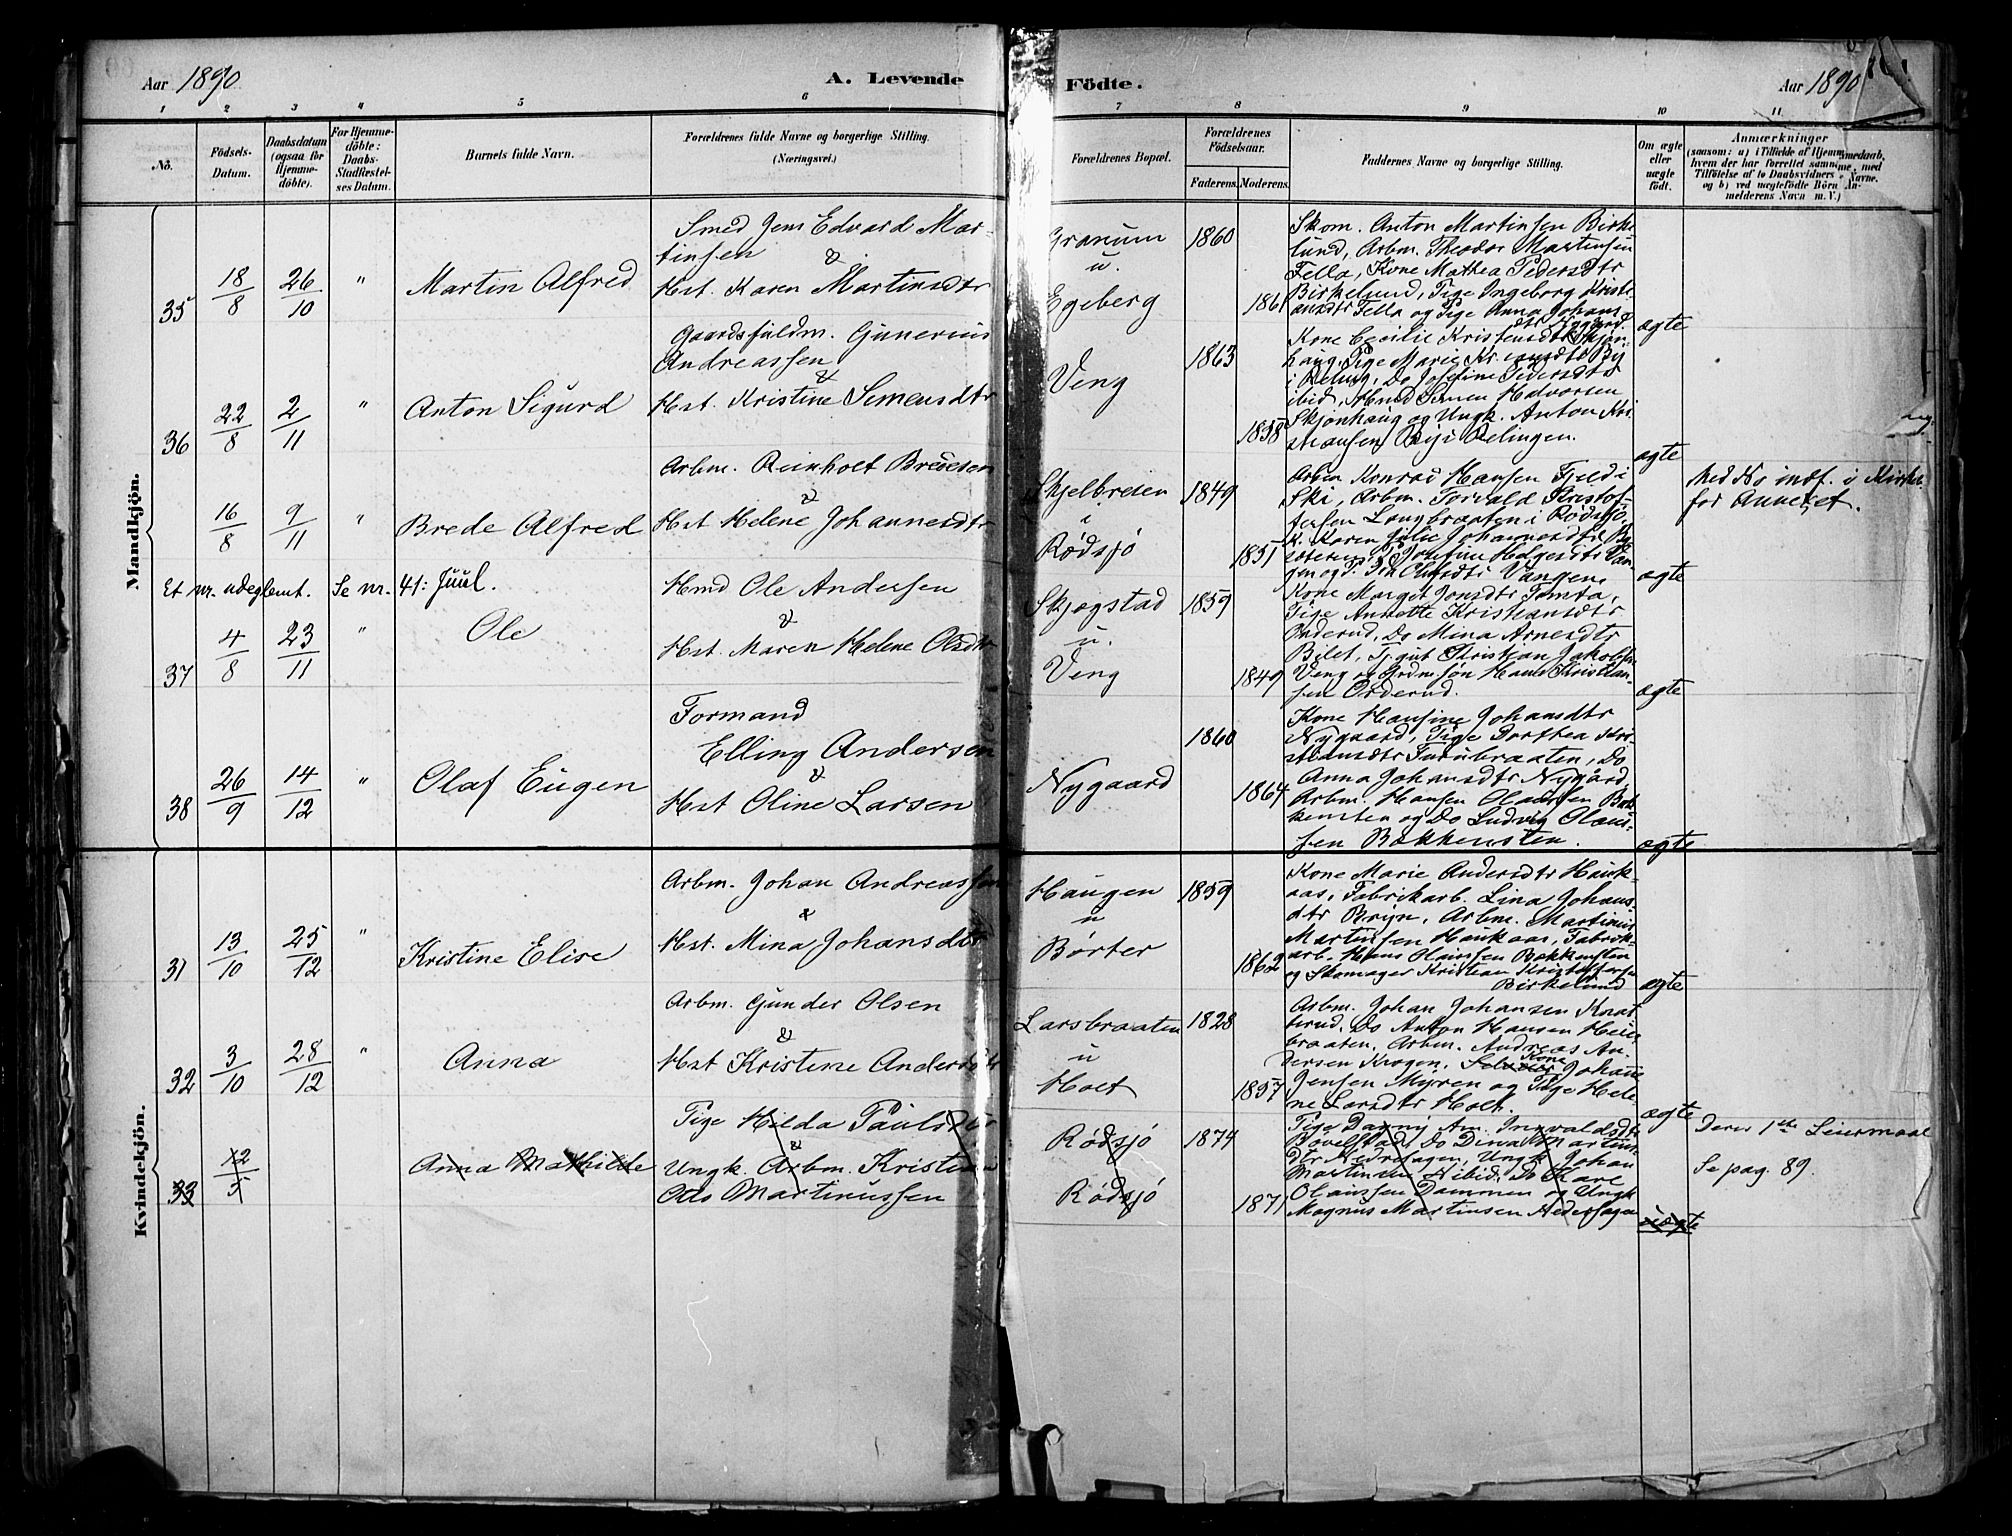 Aar 1890.
A. Levende
Födte.
Aar 1890
1 2 3 4 5 6 7 8 9 10 11
No.
Födsels-Datum.
Daabsdatum (ogsaa for Hjemme-döbte).
For Hjemme-döbte: Daabs-Stadfæstel-ses Datum.
Barnets fulde Navn.
Forældrenes fulde Navne og borgerlige Stilling. (Næringsvei.)
Forældrenes Bopæl.
Forældrenes Födselsaar.
Faderens. Moderens.
Faddernes Navne og borgerlige Stilling.
Om ægte eller uægte födt.
Anmærkninger
(saasom: a) i Tilfælde af Hjemmedaab,
hvem der har forrettet samme, med
Tilföielse af to Daabsvidners Navne.
og b) ved uægtefödte Börn An-
melderens Navn m. V.)
Mandkjön.
35 18/8 26/10 " Martin Alfred
Smed Jens Edvard Mar-
tinsen
&
Hst. Karen Martinsdtr
Granum
u.
Egeberg
1860 1861
Skom. Anton Martinsen Birke-
lund, Arbm. Theodor Martinsen
Fella, Kone Mathea Pedersdtr
Birkelund, Pige Ingeborg Kristi-
ansdtr Fella og Pige Anna Johans
dtr Nygaard
ægte
36 22/8 2/11 " Anton Sigurd
Gaardsfuldm. Gunerius
Andreassen
&
Hst. Kristine Simensdtr
Veng
1863 1858
Kone Cecilie Kristensdtr Skjön-
haug, Pige Marie Kr. ansdtr By
i Reling, Do Josefine Pedersdtr
ibid, Hmd Simen Halvorsen
Skjönhaug og Ungk. Anton Kri
stiansen By i Relingen.
ægte
16/8 9/11 " Brede Alfred
Arbm. Reinholt Bredesen
&
Hst Helene Johannesdtr
Skjelbreien
i
Rödsjö
1849 1851
Arbm Konrad Hansen Fjeld i
Ski, Arbm. Torvald Kristof-
fersen Langbraaten i Rödsjö,
K. Karen Julie Johannesdtr
P. Josefine Holgersdtr Van-
gen og P. Olufsdtr Vangen.
ægte
Med No indf. i Mirkeb
for Annexet.
Et nr. udeglemt. Se nr. 41: Juul.
37 4/8 23/11 " Ole
Hmd Ole Andersen
&
Hst. Maren Helene Olsdtr
Skjogstad
u.
Veng
1859 1849
Kone Margit Jonsdtr Tomta,
Pige Annette Kristiansdtr
Orderud, Do Mina Arnesdtr
Bilet, Tjgut Kristian Jakobsen
Veng og Grdm. sön Hans Kristian-
sen Orderud.
ægte
38 26/9 14/12 " Olaf Eugen
Formand
Elling Andersen
&
Hst Oline Larsen
Nygaard
1860 1864
Kone Hansine Johansdtr
Nygaard, Pige Dorthea Kri-
stiansdtr Furubraaten, Do
Anna Johansdtr Nygård,
Arbm. Hansen Olaussen Bæk-
kensten og Do Ludvig Olaus-
sen Bækkensten.
ægte
Kvindekjön.
31 13/10 25/12 " Kristine Elise
Arbm. Johan Andreassen
&
Hst. Mina Johansdtr
Haugen
u
Börter
1859 1862
Kone Marie Andersdtr Hauk-
aas, Fabrikarb. Lina Johans-
dtr Bryn, Arbm. Martinius
Martinsen Haukaas, Fabrik-
arb. Hans Olaussen Bækkensten
og Skomager Kristian Kristoffersen
Birkelund
ægte
32 3/10 28/12 " Anna
Arbm. Gunder Olsen
&
Hst Kristine Andersdtr
Larsbraaten
u
Holt
1828 1857
Arbm. Johan Johansen Knat
terud, Do Anton Hansen Heie
braaten, Arbm. Andreas An-
dersen Krogen, Kone Johanne
Jensen Myren og Pige Hele-
ne Larsdtr Holt.
ægte
33 12/5 Anna Mathilde
Pige Hilda Paulsdtr
&
Ungk. Arbm. Kristian
Otto Martinussen
Rödsjö
Rödsjö
1874 1871
Pige Dagny Am. Ingvaldsdtr
Bovelstad, Do Dina Martins
dtr Nedrehagen, Ungk Johan
Martinsen ibid, Do Kare
Olaussen Dammen og Ungk
Magnus Martinsen Nedrehagen
uægte
Deres 1ste Leiermaal
Se pag. 89.